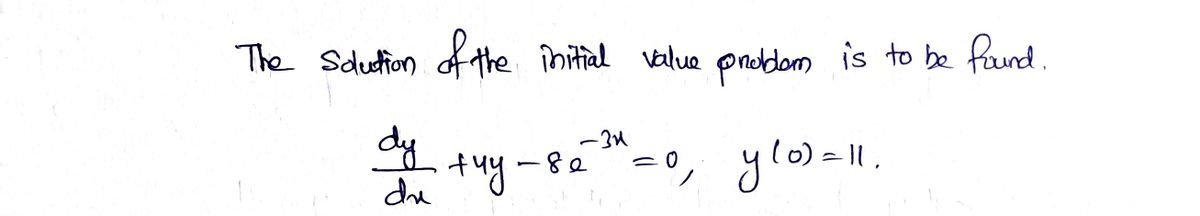 The solution of the initial value problem is to be found.
dy/dx + 4y - 8e^{-3x} = 0, y(0) = 11.